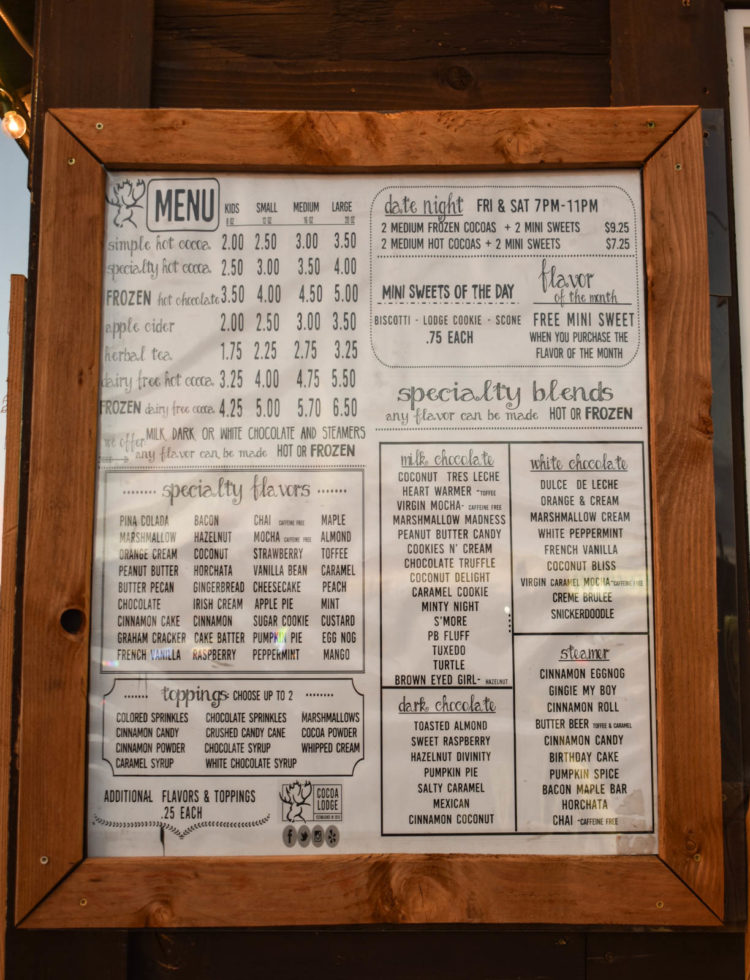 MENU KIDS SMALL MEDIUM LARGE
8 OZ 12 OZ 16 OZ 20 OZ
simple hot cocoa 2.00 2.50 3.00 3.50
specialty hot cocoa 2.50 3.00 3.50 4.00
FROZEN hot chocolate 3.50 4.00 4.50 5.00
apple cider 2.00 2.50 3.00 3.50
herbal tea 1.75 2.25 2.75 3.25
dairy free hot cocoa 3.25 4.00 4.75 5.50
FROZEN dairy free cocoa 4.25 5.00 5.70 6.50
we offer MILK, DARK, OR WHITE CHOCOLATE AND STEAMERS
any flavor can be made HOT OR FROZEN
specialty flavors
PINA COLADA BACON CHAI CAFFEINE FREE MAPLE
MARSHMALLOW HAZELNUT MOCHA CAFFEINE FREE ALMOND
ORANGE CREAM COCONUT STRAWBERRY TOFFEE
PEANUT BUTTER HORCHATA VANILLA BEAN CARAMEL
BUTTER PECAN GINGERBREAD CHEESECAKE PEACH
CHOCOLATE IRISH CREAM APPLE PIE MINT
CINNAMON CAKE CINNAMON SUGAR COOKIE CUSTARD
GRAHAM CRACKER CAKE BATTER PUMPKIN PIE EGG NOG
FRENCH VANILLA RASPBERRY PEPPERMINT MANGO
toppings- CHOOSE UP TO 2
COLORED SPRINKLES CHOCOLATE SPRINKLES MARSHMALLOWS
CINNAMON CANDY CRUSHED CANDY CANE COCOA POWDER
CINNAMON POWDER CHOCOLATE SYRUP WHIPPED CREAM
CARAMEL SYRUP WHITE CHOCOLATE SYRUP
ADDITIONAL FLAVORS & TOPPINGS
.25 EACH
COCOA
LODGE
date night FRI & SAT 7PM-11PM
2 MEDIUM FROZEN COCOAS + 2 MINI SWEETS $9.25
2 MEDIUM HOT COCOAS + 2 MINI SWEETS $7.25
MINI SWEETS OF THE DAY
BISCOTTI - LODGE COOKIE - SCONE
.75 EACH
flavor
of the month
FREE MINI SWEET
WHEN YOU PURCHASE THE
FLAVOR OF THE MONTH
specialty blends
any flavor can be made HOT OR FROZEN
milk chocolate
COCONUT TRES LECHE
HEART WARMER -TOFFEE
VIRGIN MOCHA- CAFFEINE FREE
MARSHMALLOW MADNESS
PEANUT BUTTER CANDY
COOKIES N' CREAM
CHOCOLATE TRUFFLE
COCONUT DELIGHT
CARAMEL COOKIE
MINTY NIGHT
S'MORE
PB FLUFF
TUXEDO
TURTLE
BROWN EYED GIRL- HAZELNUT
dark chocolate
TOASTED ALMOND
SWEET RASPBERRY
HAZELNUT DIVINITY
PUMPKIN PIE
SALTY CARAMEL
MEXICAN
CINNAMON COCONUT
white chocolate
DULCE DE LECHE
ORANGE & CREAM
MARSHMALLOW CREAM
WHITE PEPPERMINT
FRENCH VANILLA
COCONUT BLISS
VIRGIN CARAMEL MOCHA-CAFFEINE FREE
CREME BRULEE
SNICKERDOODLE
steamer
CINNAMON EGGNOG
GINGIE MY BOY
CINNAMON ROLL
BUTTER BEER TOFFEE & CARAMEL
CINNAMON CANDY
BIRTHDAY CAKE
PUMPKIN SPICE
BACON MAPLE BAR
HORCHATA
CHAI -CAFFEINE FREE